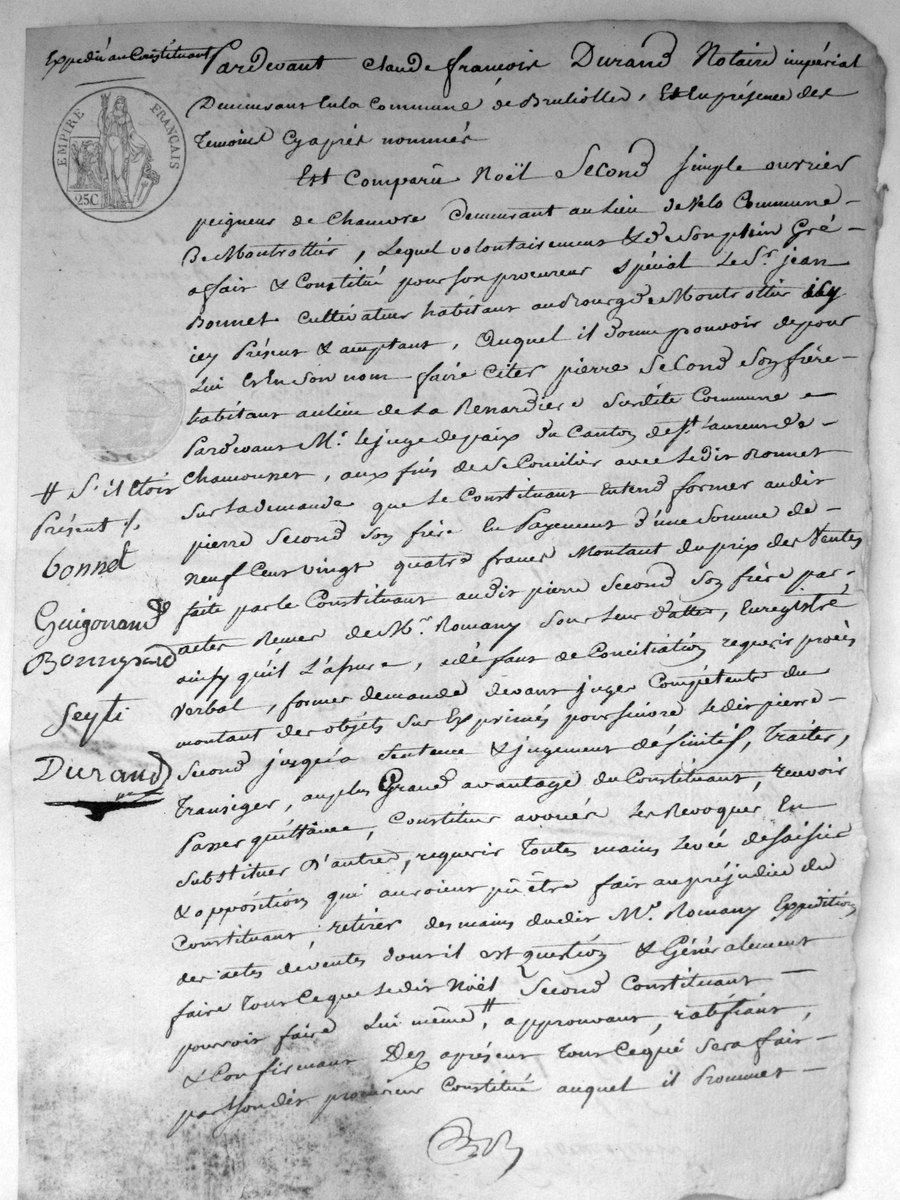 Expedié au Constituant
EMPIRE FRANÇAIS
25C
Pardevant Claude françois Durand Notaire impérial
Demeurant en la Commune de Brulliolles, Et en présence des
Temoins Cy après nommés
Est Comparû Noël Second simple ouvrier
peigneur de Chanvre demeurant au Lieu de Commune
De Montrottier, Lequel volontairement & de son plein Gré
a fait & Constitué pour son procureur spécial Le Sr. jean
Bonnet Cultivateur habitant au Bourg de Montrottier
icy Présent & acceptant, Auquel il donne pouvoir de pour
Lui Et en Son nom faire Citer pierre Second Son frère
habitant au Lieu de La Renardiere Susdite Commune
Pardevant Mr. Le juge de paix du Canton de St. Laurent de
Chamousset, aux fins de Se Concilier avec Ledit Bonnet
Sur La demande que Le Constituant Entend former audit
pierre Second Son frère En Payement d'une Somme de
neuf Cent vingt quatre francs Montant du prix des Ventes
faite par le Constituant audit pierre Second Son frère par
actes Reçus de Me. Romany Sous Leur dattes, Enregistré
ainsy qu'il L'assure, & dé faut de Conciliation requerir procès
Verbal, former demande devant juges Compétents du
montant des objets Sur Exprimés poursuivre Ledit pierre
Second jusqu'à Sentence & jugement définitif, Traiter,
Transiger, au plus Grand avantage du Constituant, recevoir
Passer quittance, Constituer avoués Les Revoquer En
Substituer D'autres, requerir Toutes mains Levée de Saisie
& oppositions qui auroient pû être fait au préjudice du
Constituant, retirer des mains dudit Me. Romany Expéditions
des actes de ventes dont il est question & Généralement
faire Tout Ce que Ledit Noël Second Constituant
pourroit faire Lui même #, approuvant, ratifiant,
& Confirmant Dez aprésent Tout Ce qué Sera fait
par Son dit procureur Constitué auquel il Promet
# S'il Etoit
Présent
bonnet
Guigonand
Seyti
Durand